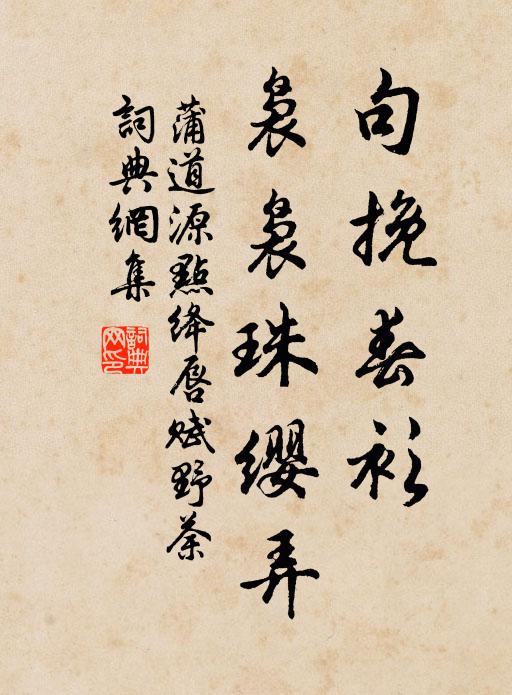 句挽春衫
袅袅珠纓弄
蒲道源點绛唇赋野荼
詞典網集
詞典網印